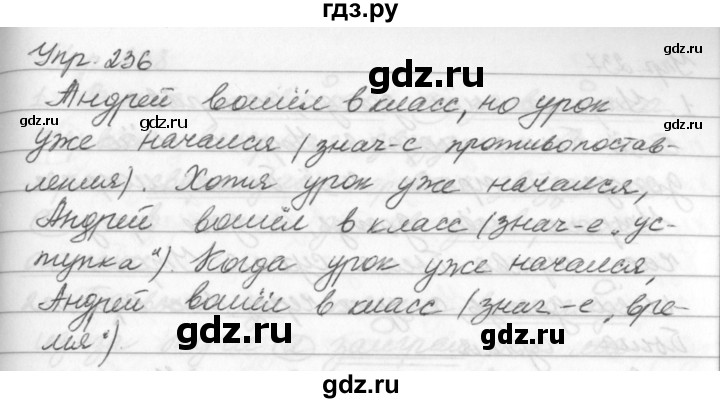 гдз.ру
Упр. 236
gdz.ru
Андрей вошёл в класс, но урок
gdz.ru gdz.ru
уже начался (знач-е противопостав-
ления). Хотя урок уже начался,
gdz.ru
Андрей вошёл в класс (знач-е „ус-
тупка“). Когда урок уже начался,
gdz.ru gdz.ru
Андрей вошёл в класс (знач-е „вре-
мя“).
gdz.ru
gdz.ru